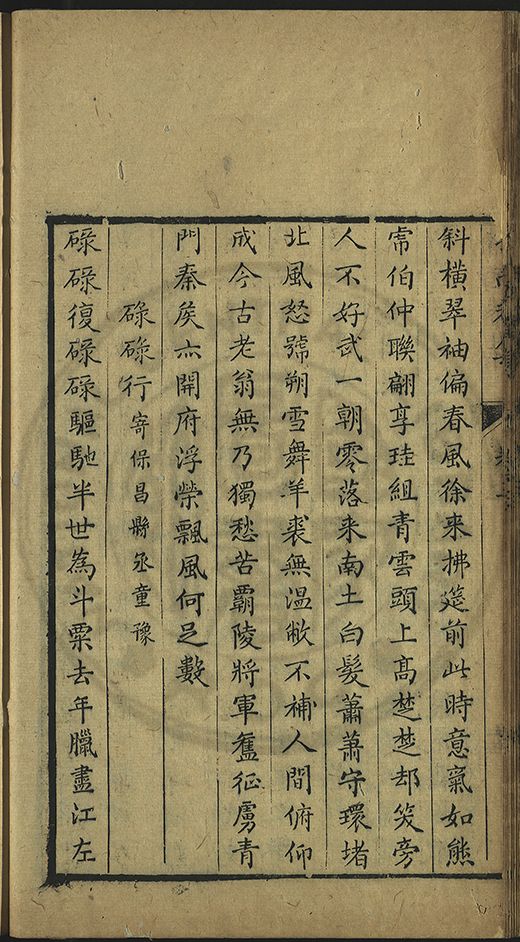 斜橫翠袖偏春風徐来拂筵前此時意氣如熊
常伯仲聯翩享珪組青雲頭上髙楚楚却笑旁
人不好武一朝零落来南土白髮蕭蕭守環堵
北風怒號朔雪舞羊裘無温敝不補人間俯仰
成今古老翁無乃獨愁苦霸陵將軍舊征虜青
門秦矦亦開府浮榮飄風何足數
碌碌行寄保昌縣丞童豫
碌碌復碌碌驅馳半世為斗粟去年臘盡江左